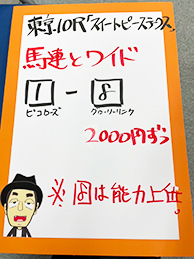 東京10R「スイートピーステークス」
馬連とワイド
1-8
ピコローズ
クローリーリンク
2000円ずつ
※ 8は能力上位。